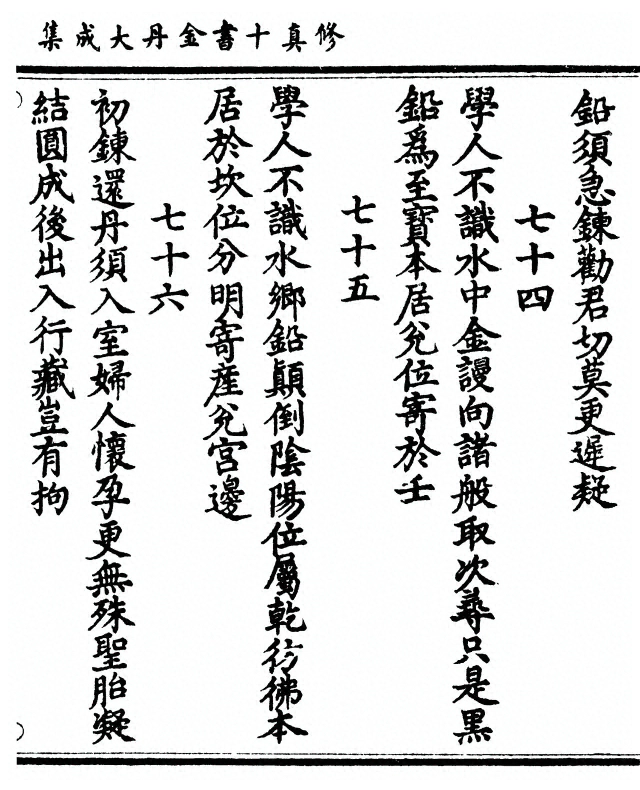 修真十書金丹大成集
鉛須急鍊勸君切莫更遲疑
七十四
學人不識水中金謾向諸般取次尋只是黑
鉛爲至寶本居兌位寄於壬
七十五
學人不識水鄉鉛顛倒陰陽位屬乾彷彿本
居於坎位分明寄產兌宮邊
七十六
初鍊還丹須入室婦人懷孕更無殊聖胎凝
結圓成後出入行藏豈有拘